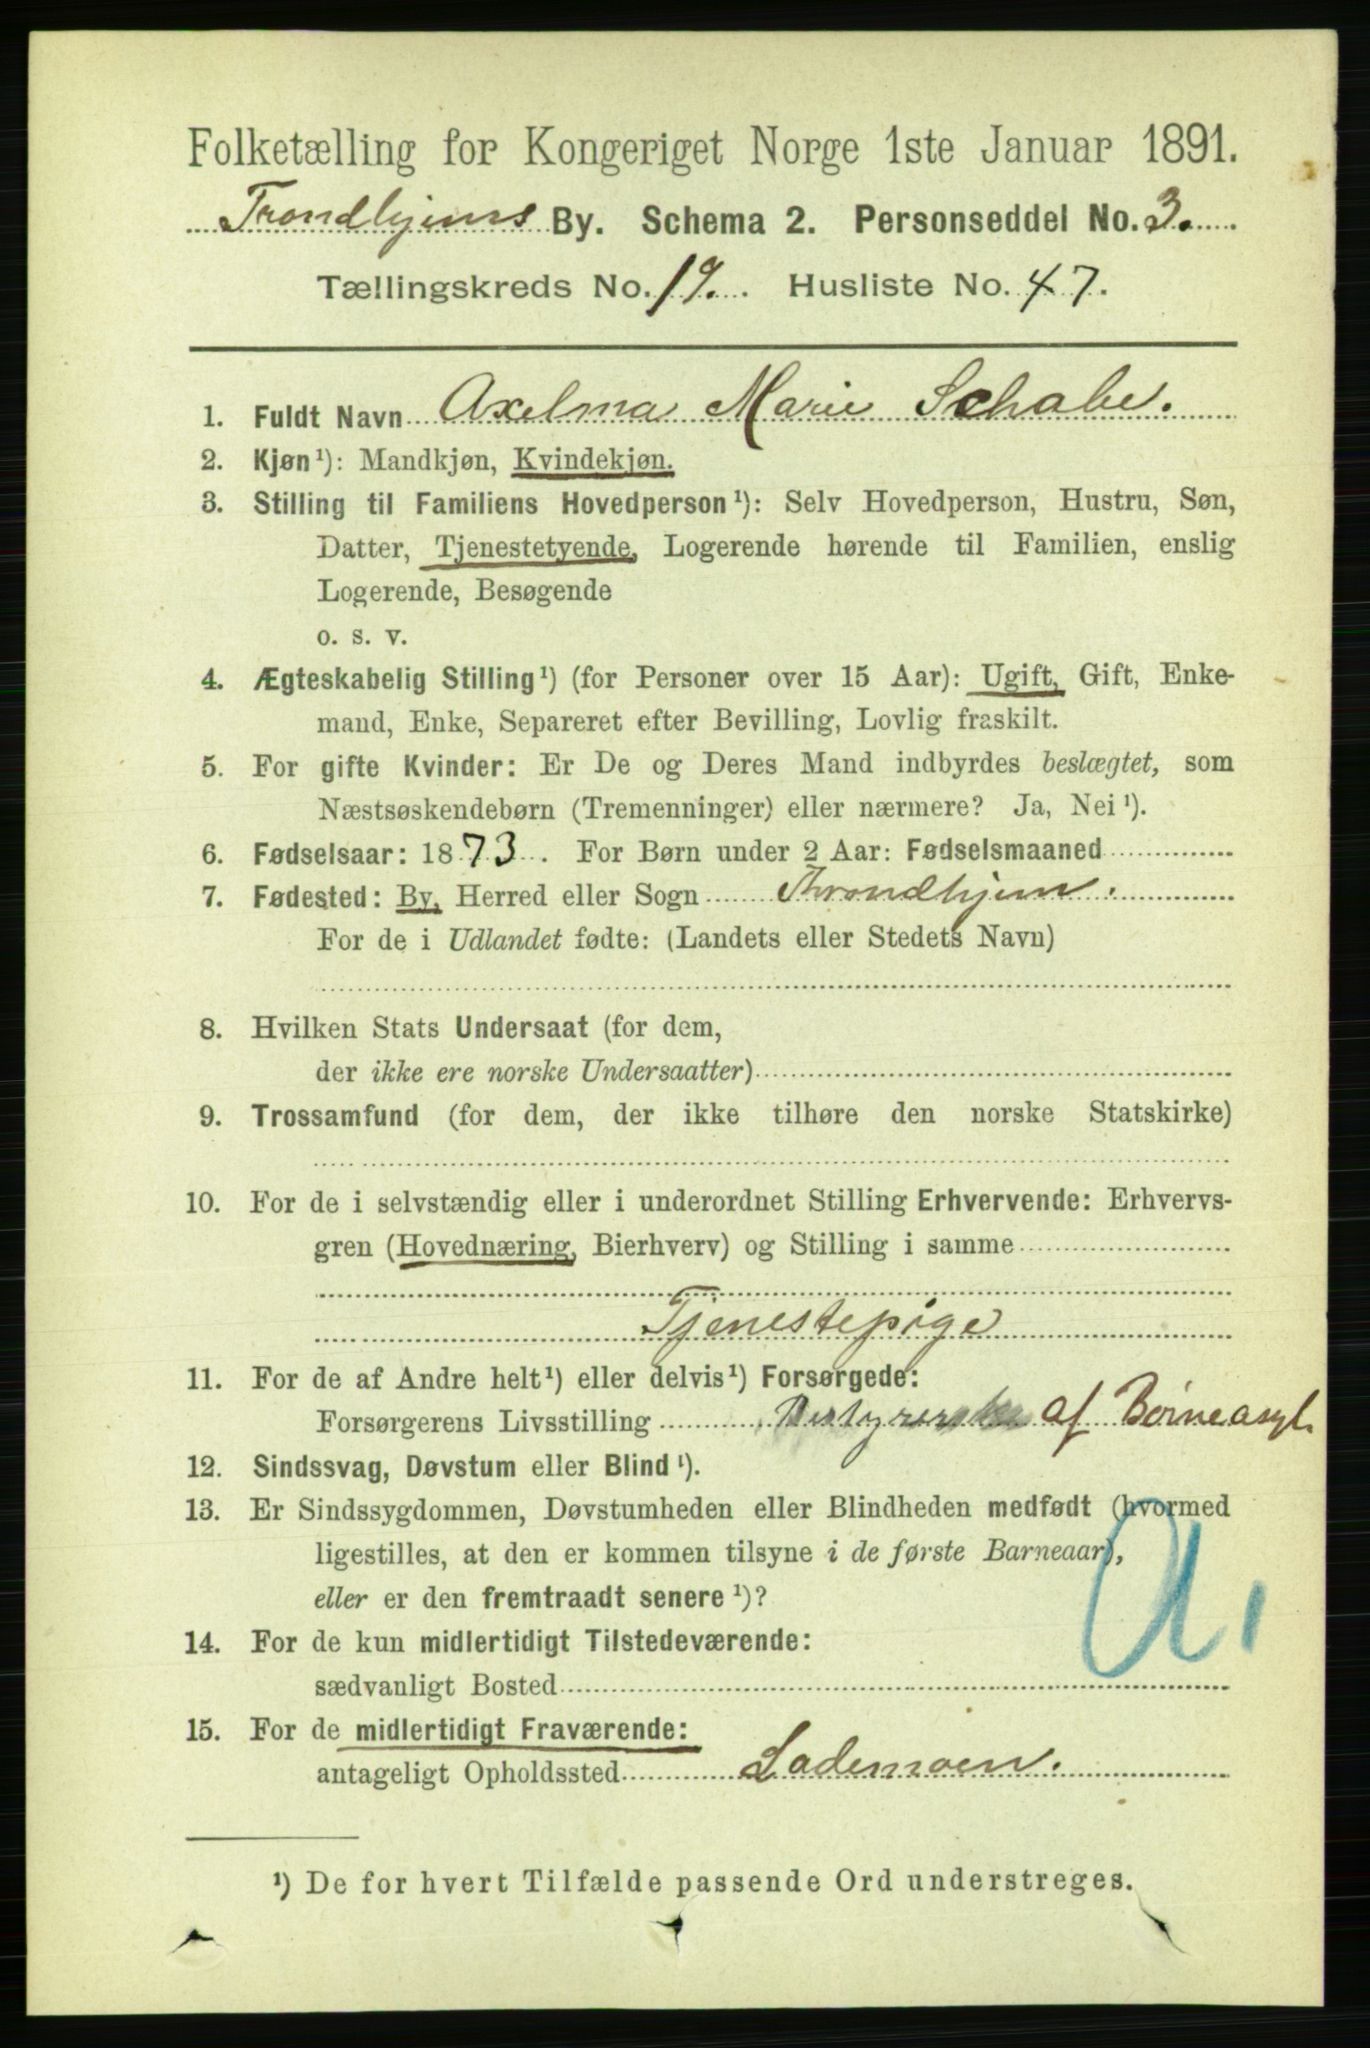 Folketælling for Kongeriget Norge 1ste Januar 1891.
Trondhjems By. Schema 2. Personseddel No. 3.
Tællingskreds No. 19. Husliste No. 47.
1. Fuldt Navn Axelma Marie Schabe.
2. Kjøn¹): Mandkjøn, Kvindekjøn.
3. Stilling til Familiens Hovedperson¹): Selv Hovedperson, Hustru, Søn,
Datter, Tjenestetyende, Logerende hørende til Familien, enslig
Logerende, Besøgende
o. s. v.
4. Ægteskabelig Stilling¹) (for Personer over 15 Aar): Ugift, Gift, Enke-
mand, Enke, Separeret efter Bevilling, Lovlig fraskilt.
5. For gifte Kvinder: Er De og Deres Mand indbyrdes beslægtet, som
Næstsøskendebørn (Tremenninger) eller nærmere? Ja, Nei¹).
6. Fødselsaar: 1873. For Børn under 2 Aar: Fødselsmaaned
7. Fødested: By, Herred eller Sogn Throndhjem.
For de i Udlandet fødte: (Landets eller Stedets Navn)
8. Hvilken Stats Undersaat (for dem,
der ikke ere norske Undersaatter)
9. Trossamfund (for dem, der ikke tilhøre den norske Statskirke)
10. For de i selvstændig eller i underordnet Stilling Erhvervende: Erhvervs-
gren (Hovednæring, Bierhverv) og Stilling i samme
Tjenestepige
11. For de af Andre helt¹) eller delvis¹) Forsørgede:
Forsørgerens Livsstilling Bestyrerske af Børneasyl.
12. Sindssvag, Døvstum eller Blind¹).
13. Er Sindssygdommen, Døvstumheden eller Blindheden medfødt (hvormed
ligestilles, at den er kommen tilsyne i de første Barneaar),
eller er den fremtraadt senere¹)?
14. For de kun midlertidigt Tilstedeværende:
sædvanligt Bosted
15. For de midlertidigt Fraværende:
antageligt Opholdssted Lademoen.
¹) De for hvert Tilfælde passende Ord understreges.